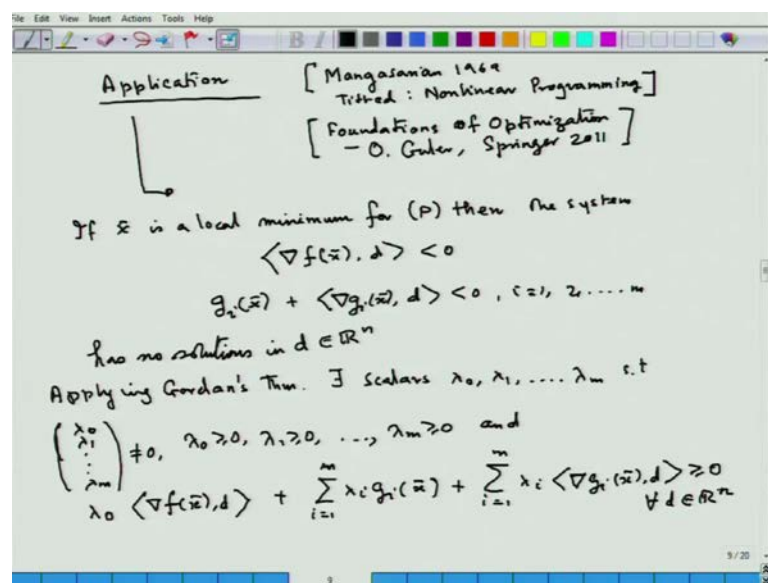 File Edit View Insert Actions Tools Help
Application [Mangasarian 1969
Titled : Nonlinear Programming]
[Foundations of Optimization
- O. Guler, Springer 2011]
If x̄ is a local minimum for (P) then the system
⟨∇f(x̄), d⟩ < 0
gᵢ(x̄) + ⟨∇gᵢ(x̄), d⟩ < 0, i=1, 2, .... m
has no solutions in d ∈ ℝⁿ
Applying Gordan's Thm. ∃ scalars λ₀, λ₁, .... λₘ s.t
(λ₀ λ₁ ⋮ λₘ) ≠ 0, λ₀ ≥ 0, λ₁ ≥ 0, ..., λₘ ≥ 0 and
λ₀ ⟨∇f(x̄), d⟩ + ∑ᵢ₌₁ᵐ λᵢ gᵢ(x̄) + ∑ᵢ₌₁ᵐ λᵢ ⟨∇gᵢ(x̄), d⟩ ≥ 0
∀ d ∈ ℝⁿ
9/20
9